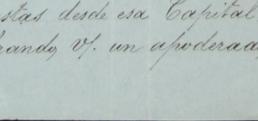 stas desde esa Capital
rando, V. un apoderad